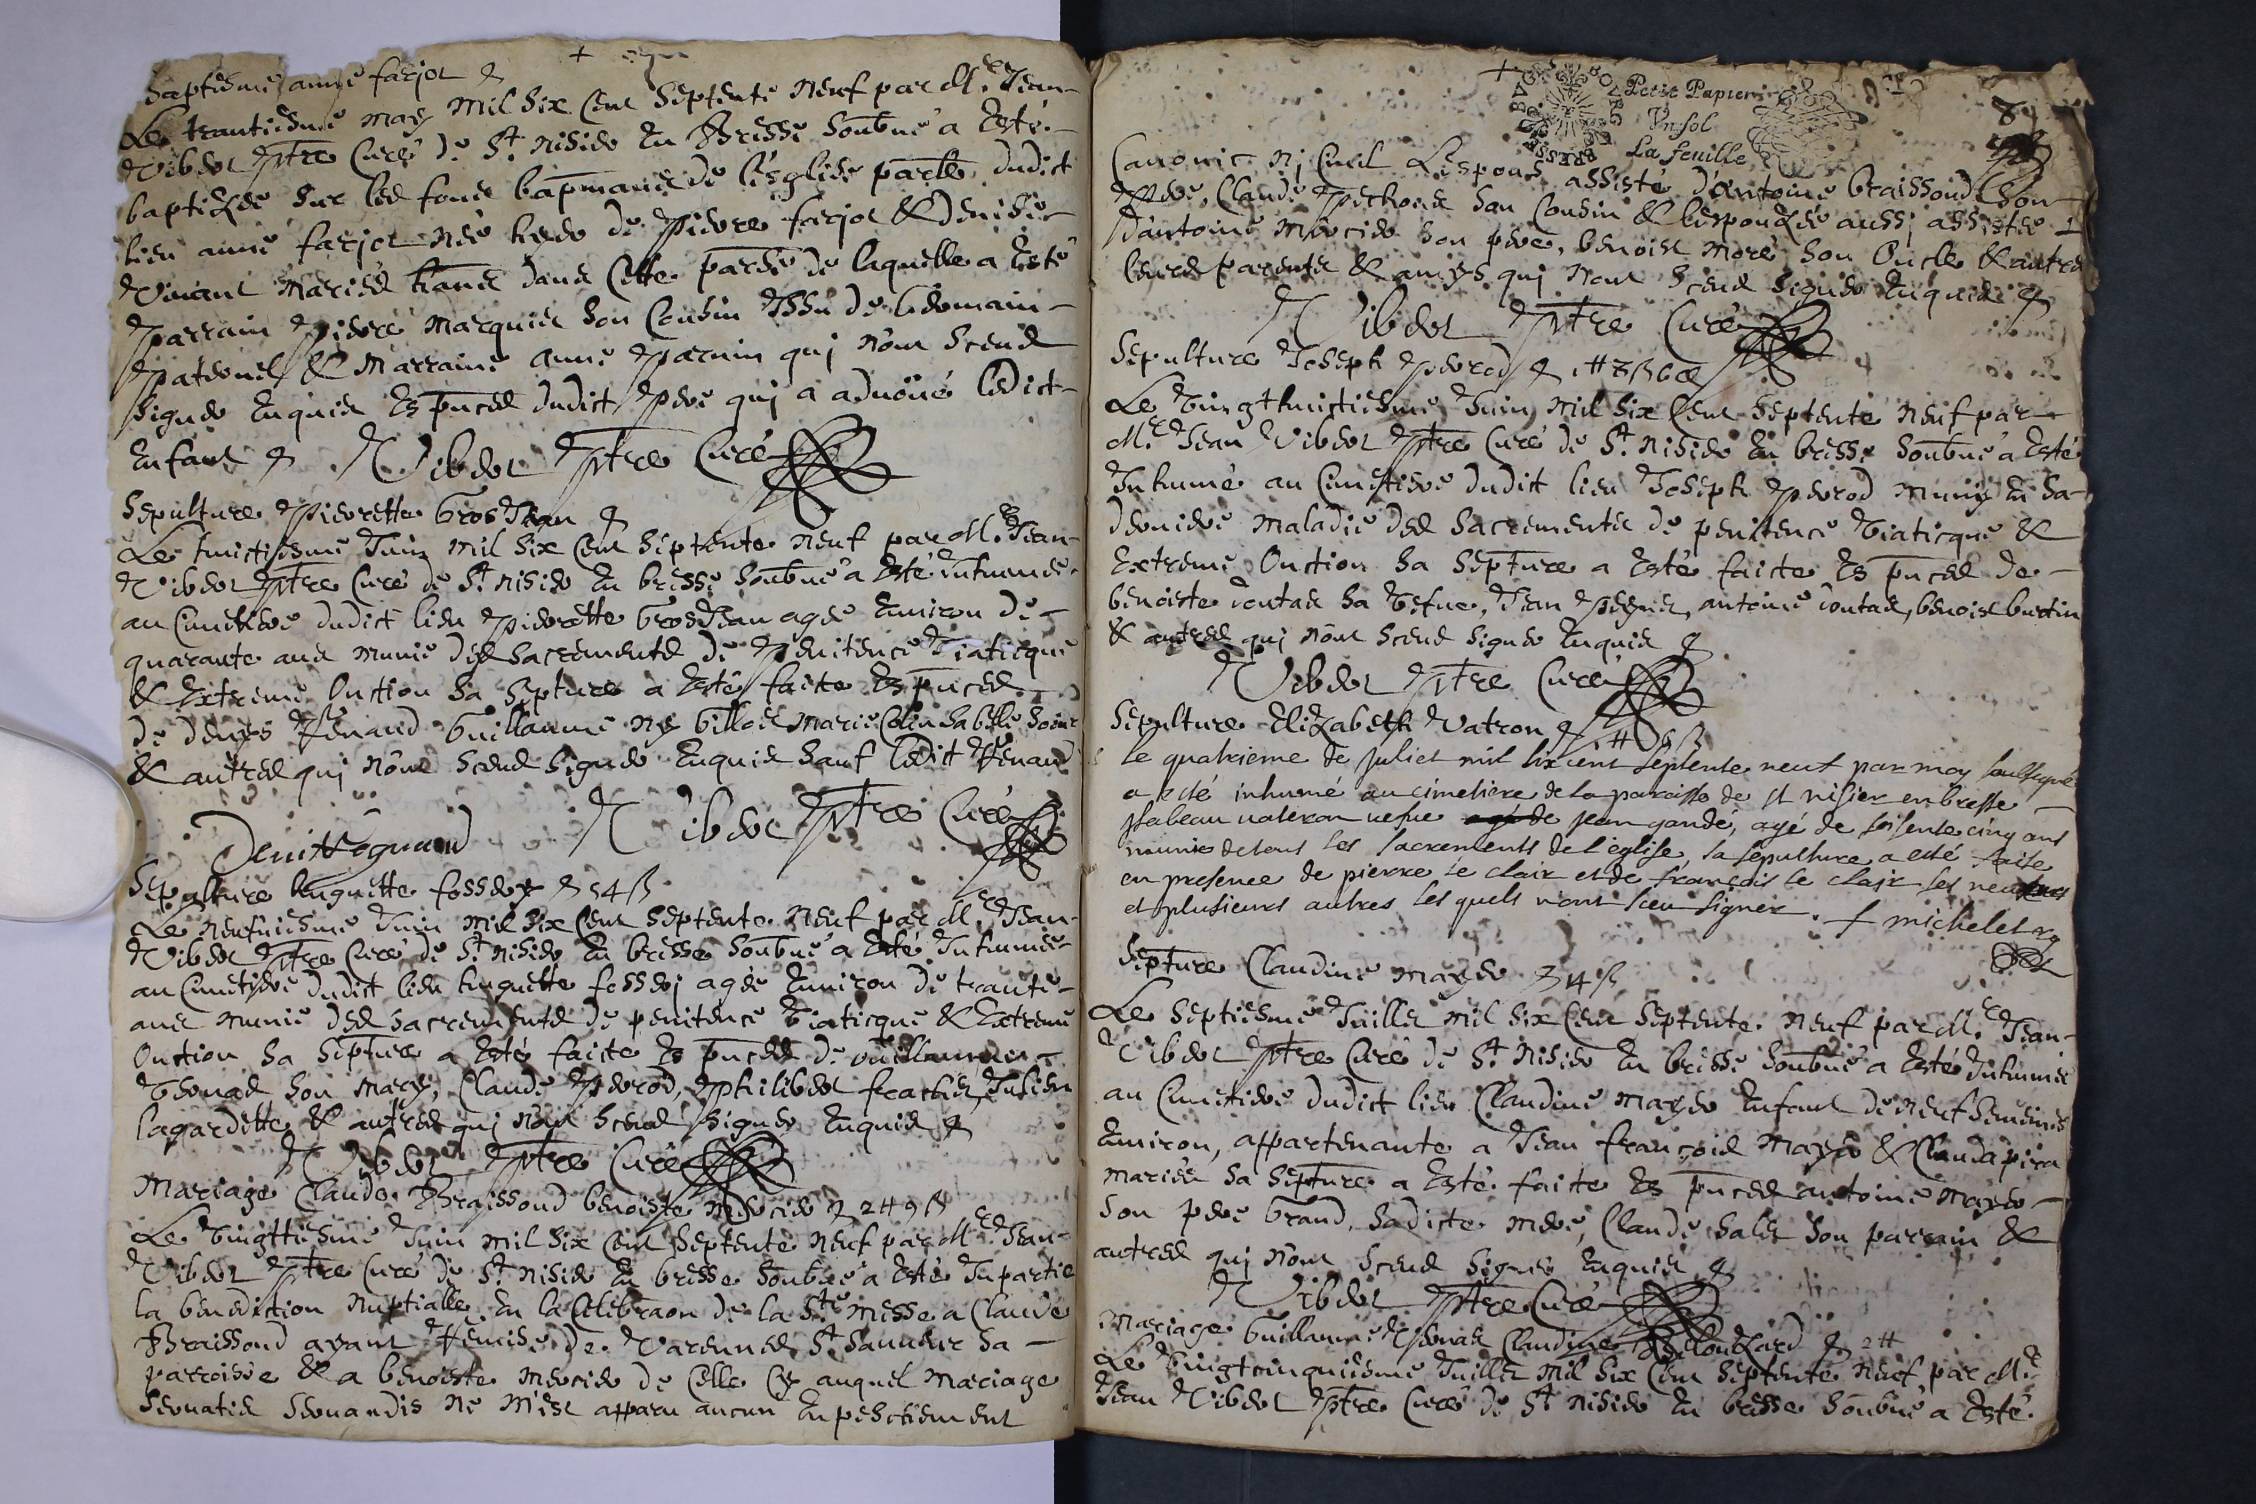 Baptesme anne farjot
Le trantiesme may mil six cent septente neuf par Mre Jean
Vibert ptre curé de St nisier en Bresse soubné a esté
baptizée sur les fonds bapmaux de lesglise parlle dudict
lieu anne farjot née hyer de pierre farjot & denise
Viuant mariés hants dans cette parsse de laquelle a esté
parrain pierre marquis son cousin issu de Germain
paternel & marraine anne parnin qui nont sceus
signer enquis Es pnces dudict pere qui a aduoüé ledict
Enfant Vibert ptre Curé
Sepulture pierrette GrosJean
Le huictiesme Juin mil six cent septente neuf par Mre Jean
Vibert ptre curé de St nisier en bresse soubné a esté inhumée
au Cimetiere dudict lieu pierrette GrosJean agée enuiron de
quarante ans munie des sacrements de penitence viaticque
& Extreme Onction sa septure a esté faite Es pnces
de denys Renaud Guillaume ny Gillot marie Colin sa belle soeur
& autres qui nont sceus signer enquis sauf ledict Renaud
Vibert ptre Curé
Denis Regnaud
Sepulture huguette fossey 54 ß
Le neufuiesme Juin mil six cent septente neuf par Mre Jean
Vibert ptre curé de St nisier en bresse soubné a esté Inhumée
au Cimetiere dudict lieu huguette fossey agée enuiron de trante
ans munie des sacrements de penitence viaticque & Extreme
Onction sa septure a esté faicte Es pnces de Guillaume
son mary, Claude perrod, philibert frachet, Julien
lagardette & autres qui nont sceus signer enquis
Vibert ptre Curé
Mariage Claude Braissoud benoiste mercier 2 # 9 ß
Le vingttiesme Juin mil six cent septente neuf par Mre Jean
Vibert ptre curé de St nisier en bresse soubné a esté Inpartie
la benediction nuptialle en la Celebraon de la Ste messe a Claude
Braissoud ayant Remise de Varennes St Sauueur sa
parroisse & a benoiste mercier de Celle Cy auquel mariage
seruatis seruandis ne mest apparu aucun Enpeschement
Petit Papier
Vn sol
La feuille
8
Canonic ni Ciuil Lespoux assisté dantoine braissoud son
pere, Claude pechoux son Cousin & lespouzée aussi assistée
dantoine mercier son pere, benoist moré son oncle & autres
leurs parents & amys qui nont sceus signer enquis
Vibert ptre Curé
Sepulture Joseph perrod
Le vingthuictiesme Juin mil six cent septente neuf par
Mre Jean Vibert ptre curé de St nisier en bresse soubné a esté
Inhumé au Cimetiere dudict lieu Joseph perrod muny en sa
derniere maladie des sacrements de penitence viaticque &
Extreme Onction sa septure a esté faicte Es pnces de
benoiste sa vefue, Jean antoine benoist burtin
& autres qui nont sceus signer enquis
Vibert ptre Curé
Sepulture Elizabeth Vatron
le quatrieme de juliet mil six cent septente neuf par moy soubsigné
a esté inhumé au cimetiere de la paroisse de st nisier en bresse
ysabeau vateron vefue agé de jean gandé, agé de soisente cinq ans
munie de tous les sacrements de l'eglise, la sepulture a esté faite
en presence de pierre le clair et de françois le clair ses neufueux
et plusieurs autres les quels n'ont sceu signer. f michelet
Septure Claudine mayer 14 ß
Le septiesme Juillet mil six cent septente neuf par Mre Jean
Vibert ptre curé de St nisier en bresse soubné a esté Inhumée
au Cimetiere dudict lieu Claudine mayer Enfant de neuf semaines
Enuiron, appartenante a Jean françois mayer & Clauda
mariés sa septure a esté faitte Es pnces antoine mayer
son pere Grand, sadicte mere, Claude son parrain &
autres qui nont sceus signer enquis
Vibert ptre Curé
Mariage Guillaume Claudine 2 #
Le vingtcinquiesme Juillet mil six cent septente neuf par Mre
Jean Vibert ptre curé de St nisier en bresse soubné a esté